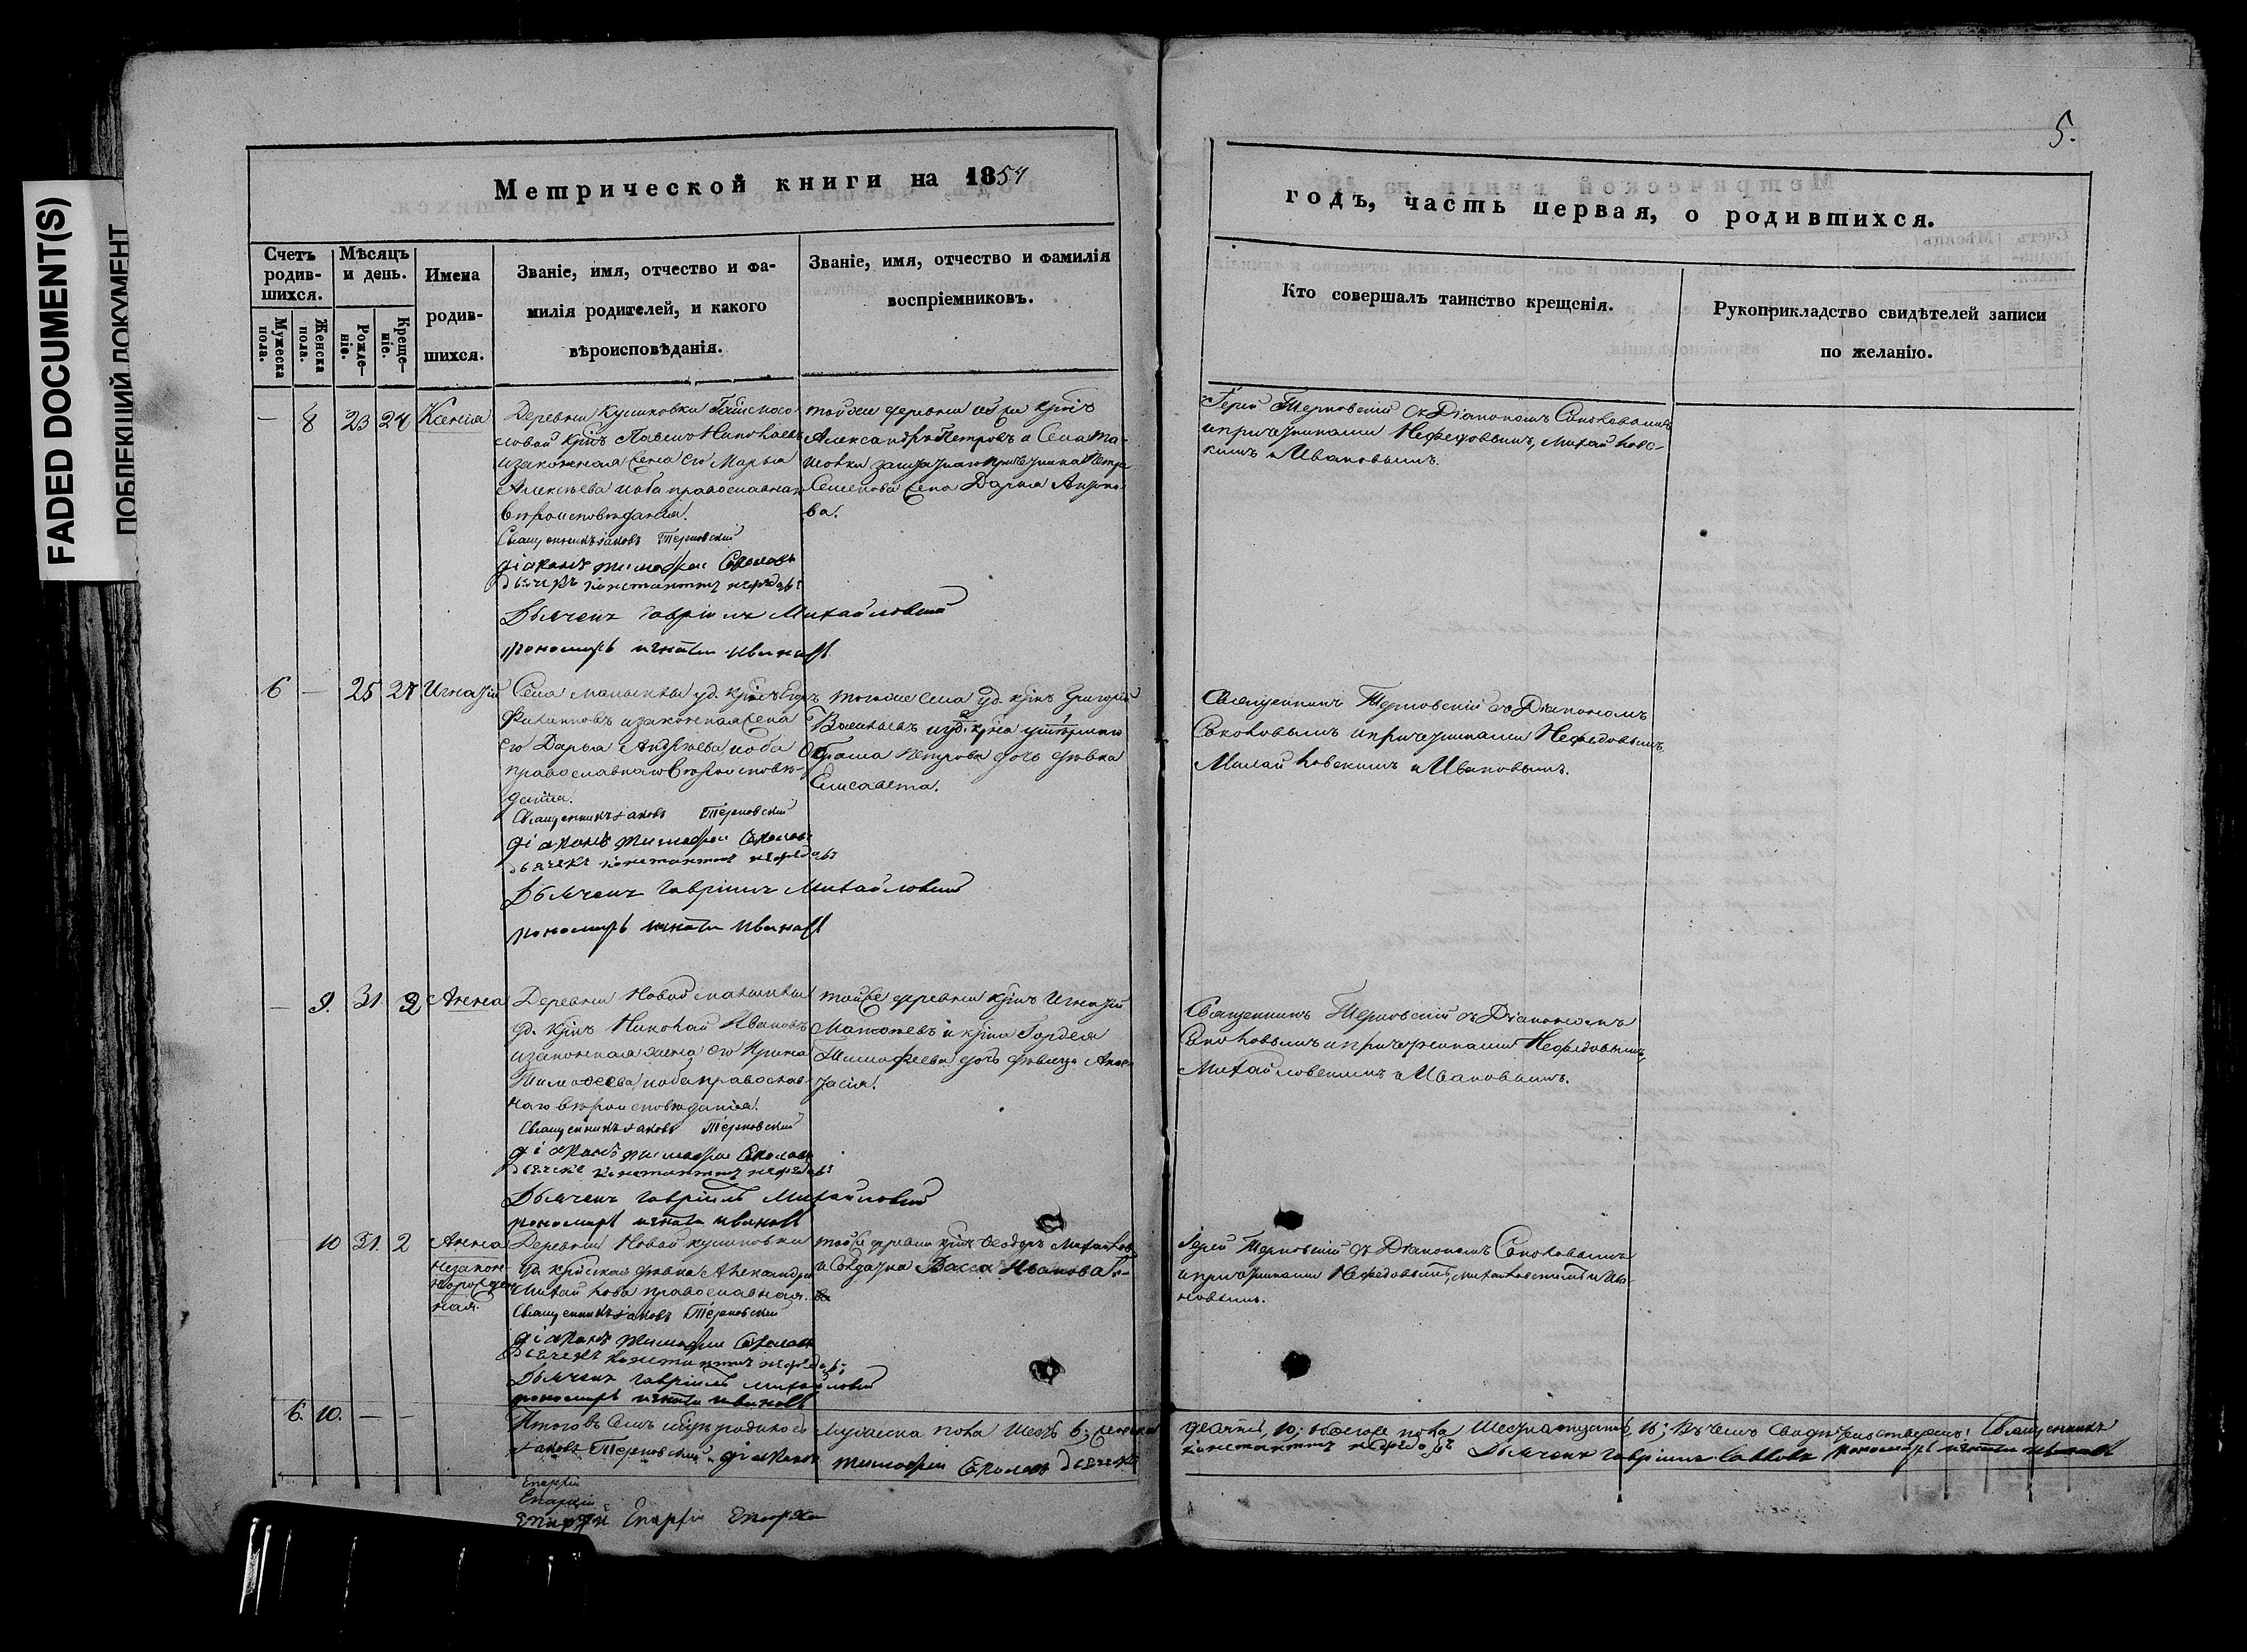 FADED DOCUMENT(S)
ПОБЛЕКШИЙ ДОКУМЕНТ
5.
Метрической книги на 1854
годъ, часть первая, о родившихся.
Счетъ родив-шихся.
Мужеска пола.
Женска пола.
Мѣсяцъ и день.
Рожде-ніе.
Креще-ніе.
Имена родив-шихся.
Званіе, имя, отчество и фа-
милія родителей, и какого
вѣроисповѣданія.
Званіе, имя, отчество и фамилія
воспріемниковъ.
Кто совершалъ таинство крещенія.
Рукоприкладство свидѣтелей записи
по желанію.
— 8 23 24 Ксенія
Деревни Куликовки
Павелъ Николаевъ
и законная жена его Марья
Алексѣева, оба православнаго
вѣроисповѣданія.
Священникъ Іаковъ Терновскій
діаконъ тимофеи Соколовъ
дьячекъ константинъ нефедовъ
Дьячекъ Гавріилъ Михайловскій
пономарь игнати ивановъ
тойже деревни
Александръ Петровъ и Села Ма-
Петра
Семенова жена Дарья
ва.
Іерей Терновскій съ Діакономъ Соколовымъ
и причетниками Нефедовымъ, Михайловс-
кимъ и Ивановымъ.
6 — 25 27 Игнатій
Села малыклы уд. крнъ Егоръ
Филипповъ и законная жена
его Дарья Андреева, оба
православнаго вѣроисповѣ-
данія.
Священникъ Іаковъ Терновскій
діаконъ тимофеи Соколовъ
дьячекъ константинъ нефедовъ
Дьячекъ Гавріилъ Михайловскій
пономарь игнати ивановъ
тогоже села уд. крнъ Григорій
Васильевъ
Петрова дочь дѣвка
Елисавета.
Священникъ Терновскій съ Діакономъ
Соколовымъ и причетниками Нефедовымъ
Михайловскимъ и Ивановымъ.
— 9. 31 2 Анна
Деревни Новой малыклы
уд. крнъ Николай Ивановъ
и законная жена его Ирина
Тимофеева, оба православ-
наго вѣроисповѣданія.
Священникъ Іаковъ Терновскій
діаконъ тимофеи Соколовъ
дьячекъ константинъ нефедовъ
Дьячекъ Гавріилъ Михайловскій
пономарь игнати ивановъ
тойже деревни крнъ Игнатій
и крнна Гордея
Тимофеева дочь дѣвица Анас-
тасія.
Священникъ Терновскій съ Діакономъ
Соколовымъ и причетниками Нефедовымъ,
Михайловскимъ и Ивановымъ.
10 31. 2 Анна
незакон-
норожден-
ная.
Деревни Новой куликовки
уд. крнская дѣвка Александра
Михайлова православная.
Священникъ Іаковъ Терновскій
діаконъ тимофеи Соколовъ
дьячекъ константинъ нефедовъ
Дьячекъ Гавріилъ Михайловскій
пономарь игнати ивановъ
тойже деревни крнъ Ѳеодоръ Михайловъ
и Солдатка Васса Иванова
Іерей Терновскій съ Діакономъ Соколовымъ
и причетниками Нефедовымъ, Михайловскимъ и Ива-
новымъ.
6. 10. — —
Итого въ семъ мѣсяцѣ родилось мужеска пола шесть 6; женска десять, 10; обоего пола шестнатцать, 16; Въ чемъ свидѣтельствуемъ: Священникъ
Іаковъ Терновскій діаконъ тимофеи Соколовъ дьячекъ константинъ нефедовъ Дьячекъ Гавріилъ пономарь игнати ивановъ
Епархіи
Епархіи
Епархіи Епархіи